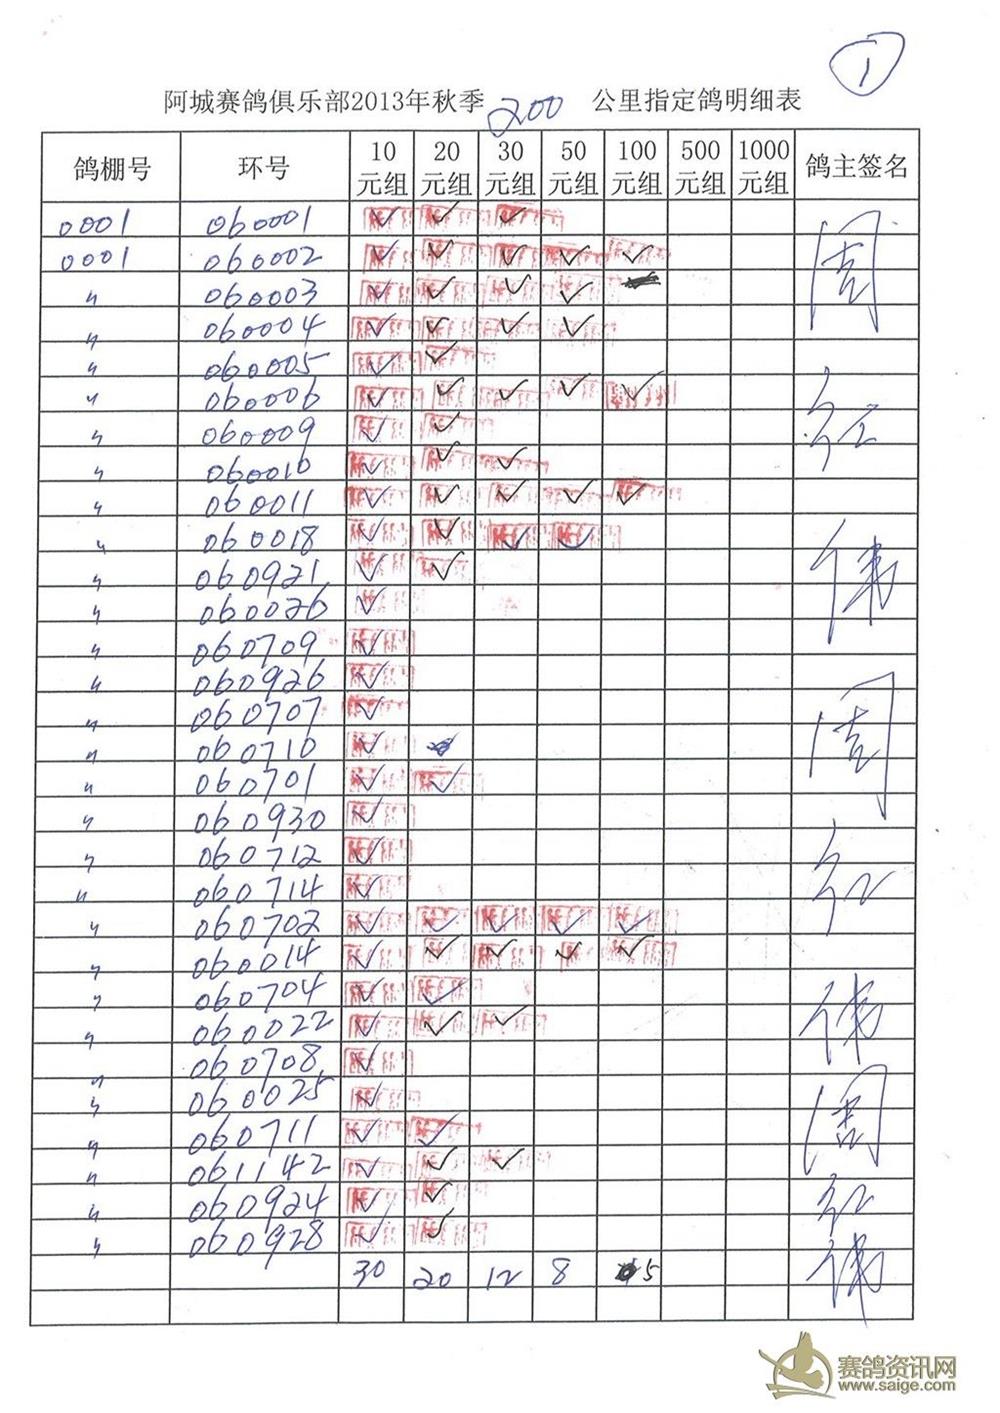 1
阿城赛鸽俱乐部2013年秋季 200 公里指定鸽明细表
鸽棚号 环号 10元组 20元组 30元组 50元组 100元组 500元组 1000元组 鸽主签名
0001 060001 ✓ ✓ ✓
0001 060002 ✓ ✓ ✓ ✓ ✓
〃 060003 ✓ ✓ ✓ ✓
〃 060004 ✓ ✓ ✓ ✓
〃 060005 ✓ ✓
〃 060006 ✓ ✓ ✓ ✓ ✓
〃 060009 ✓ ✓
〃 060010 ✓ ✓ ✓
〃 060011 ✓ ✓ ✓ ✓ ✓
〃 060018 ✓ ✓ ✓ ✓
〃 060921 ✓ ✓
〃 060026 ✓
〃 060709 ✓
〃 060926 ✓
〃 060707 ✓
〃 060710 ✓
〃 060701 ✓ ✓
〃 060930 ✓
〃 060712 ✓
〃 060714 ✓
〃 060702 ✓ ✓ ✓ ✓ ✓
〃 060014 ✓ ✓ ✓ ✓ ✓
〃 060704 ✓ ✓
〃 060022 ✓ ✓ ✓
〃 060708 ✓
〃 060025 ✓
〃 060711 ✓ ✓
〃 061142 ✓ ✓ ✓
〃 060924 ✓ ✓
〃 060928 ✓ ✓
30 20 12 8 5
周
红
伟
周
红
伟
周
红
伟
赛鸽资讯网
www.saige.com